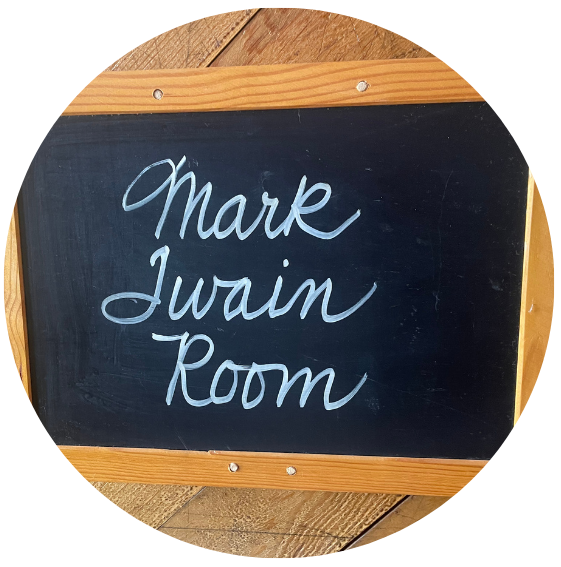 Mark
Twain
Room